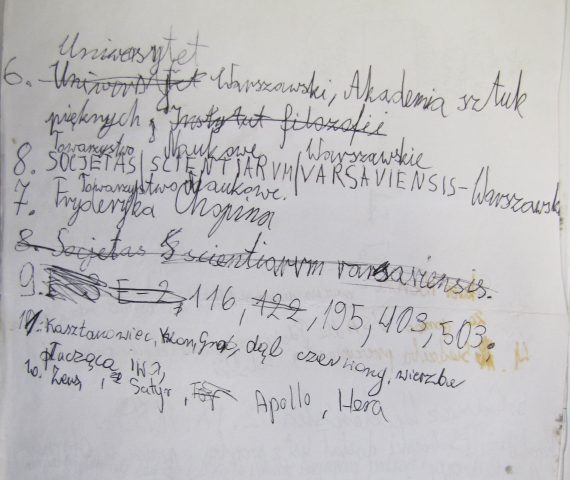 Uniwersytet
6. Uniwersytet Warszawski, Akademia sztuk
pięknych, Instytut filozofii
Towarzystwo Naukowe Warszawskie
8. SOCJETAS/SCIENTJARVM/VARSAVIENSIS-Warszawskie
Towarzystwo Naukowe.
7. Fryderyka Chopina
8. Socjetas scientiarum varsaviensis.
9. E-2, 116, 122, 195, 403, 503.
11. Kasztanowiec, klon, grab, dąb czerwony, wierzba
płacząca
10. Zeus, Satyr, Apollo, Hera